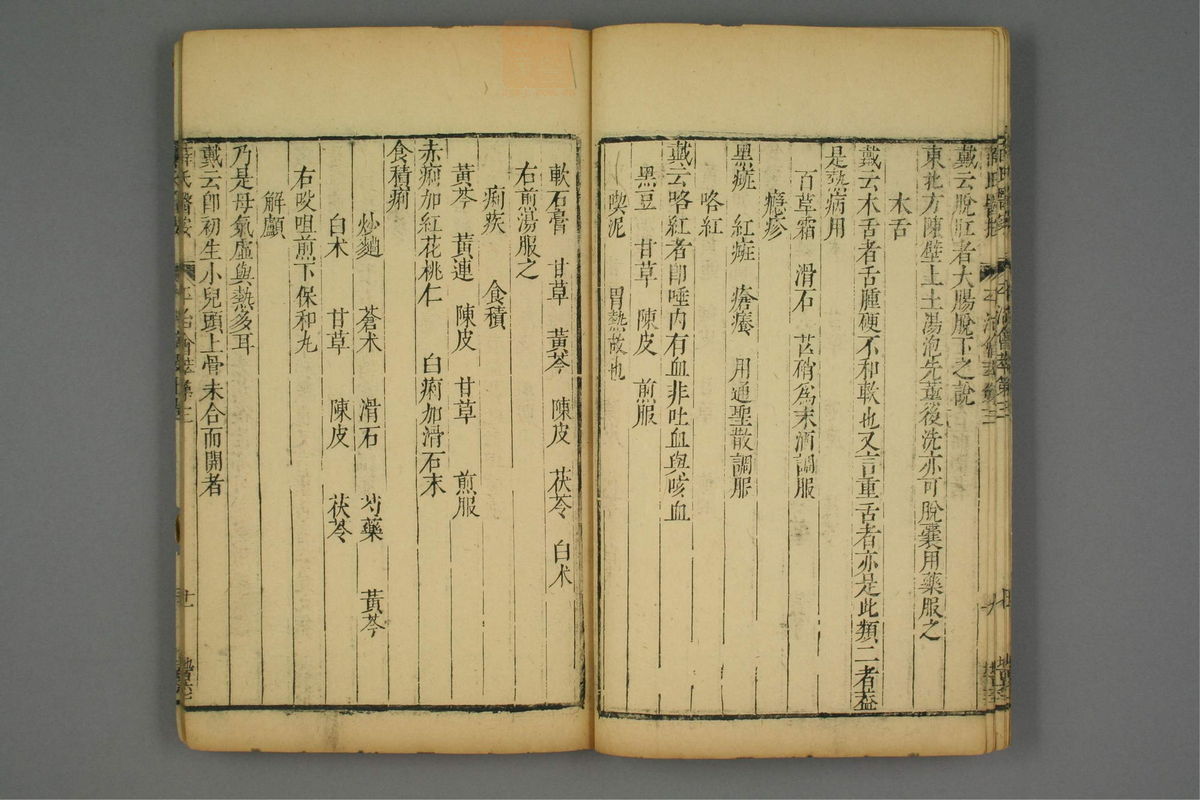 戴云脫肛者大腸脫下之說
東北方陳壁土土湯泡先薰後洗亦可脫囊用藥服之
木舌
戴云木舌者舌腫硬不和軟也又言重舌者亦是此類二者蓋
是熱病用
百草霜　滑石　芒硝爲末酒調服
癮疹
黑㾦　紅㾦　瘡癢　用通聖散調服
咯紅
戴云咯紅者卽唾內有血非吐血與咳血
黑豆　甘草　陳皮　煎服
喫泥　胃熱故也
軟石膏　甘草　黃芩　陳皮　茯苓　白朮
右煎湯服之
痢疾　食積
黃芩　黃連　陳皮　甘草　煎服
赤痢加紅花桃仁　白痢加滑石末
食積痢
炒麯　蒼朮　滑石　芍藥　黃芩
白朮　甘草　陳皮　茯苓
右㕮咀煎下保和丸
解顱
乃是母氣虛與熱多耳
戴云卽初生小兒頭上骨未合而開者